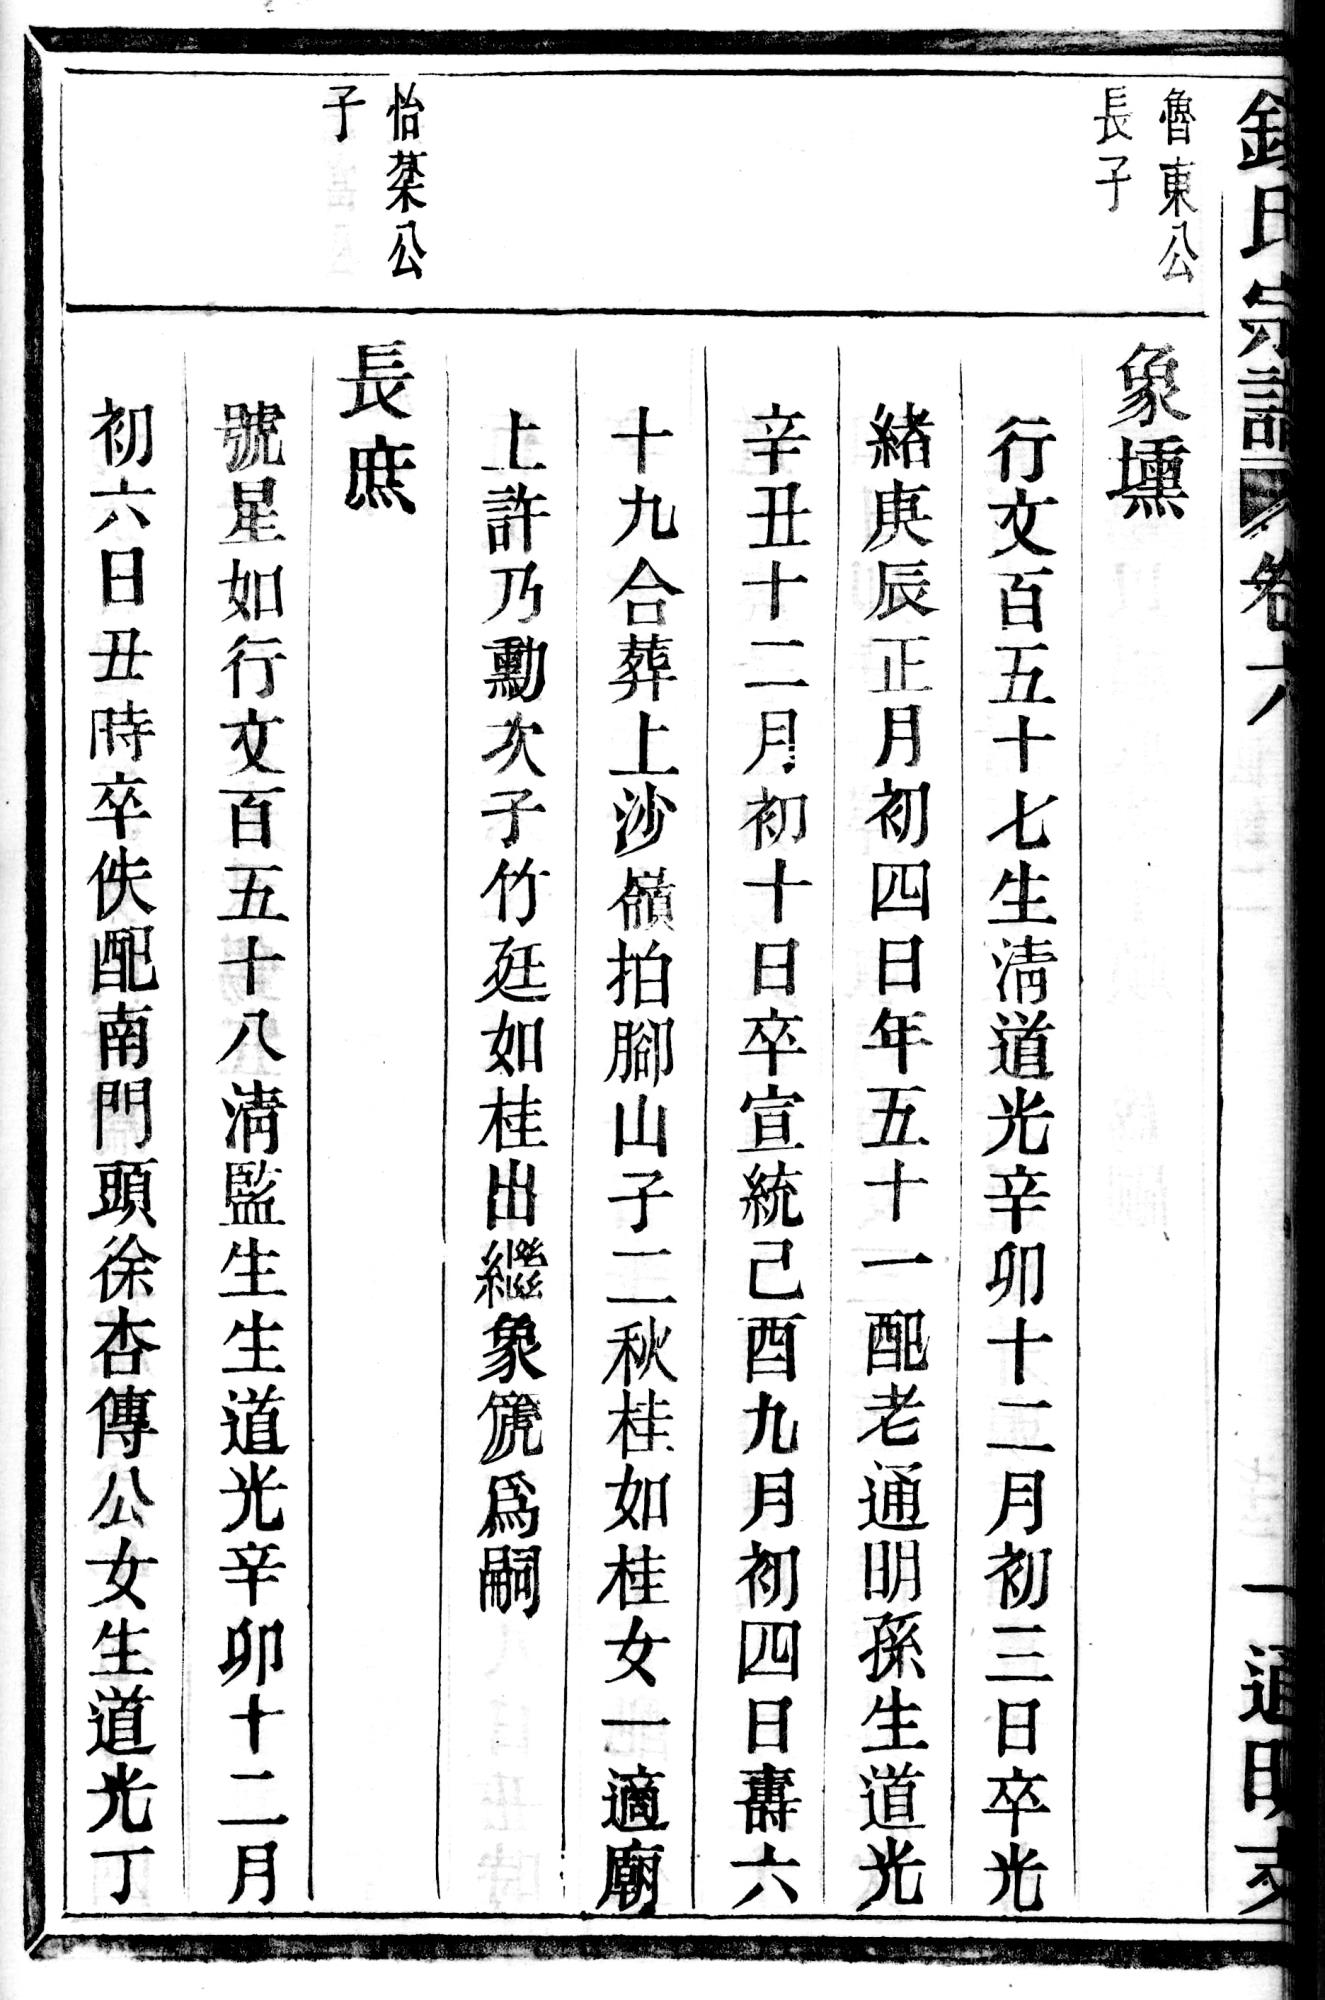 氏宗譜 卷六 一 通明支
魯東公
長子
象壎
行文百五十七生淸道光辛卯十二月初三日卒光
緒庚辰正月初四日年五十一配老通明孫生道光
辛丑十二月初十日卒宣統己酉九月初四日壽六
十九合葬上沙嶺拍腳山子二秋桂如桂女一適廟
上許乃勳次子竹廷如桂出繼象箎爲嗣
怡棻公
子
長庶
號星如行文百五十八淸監生生道光辛卯十二月
初六日丑時卒佚配南門頭徐杏傳公女生道光丁